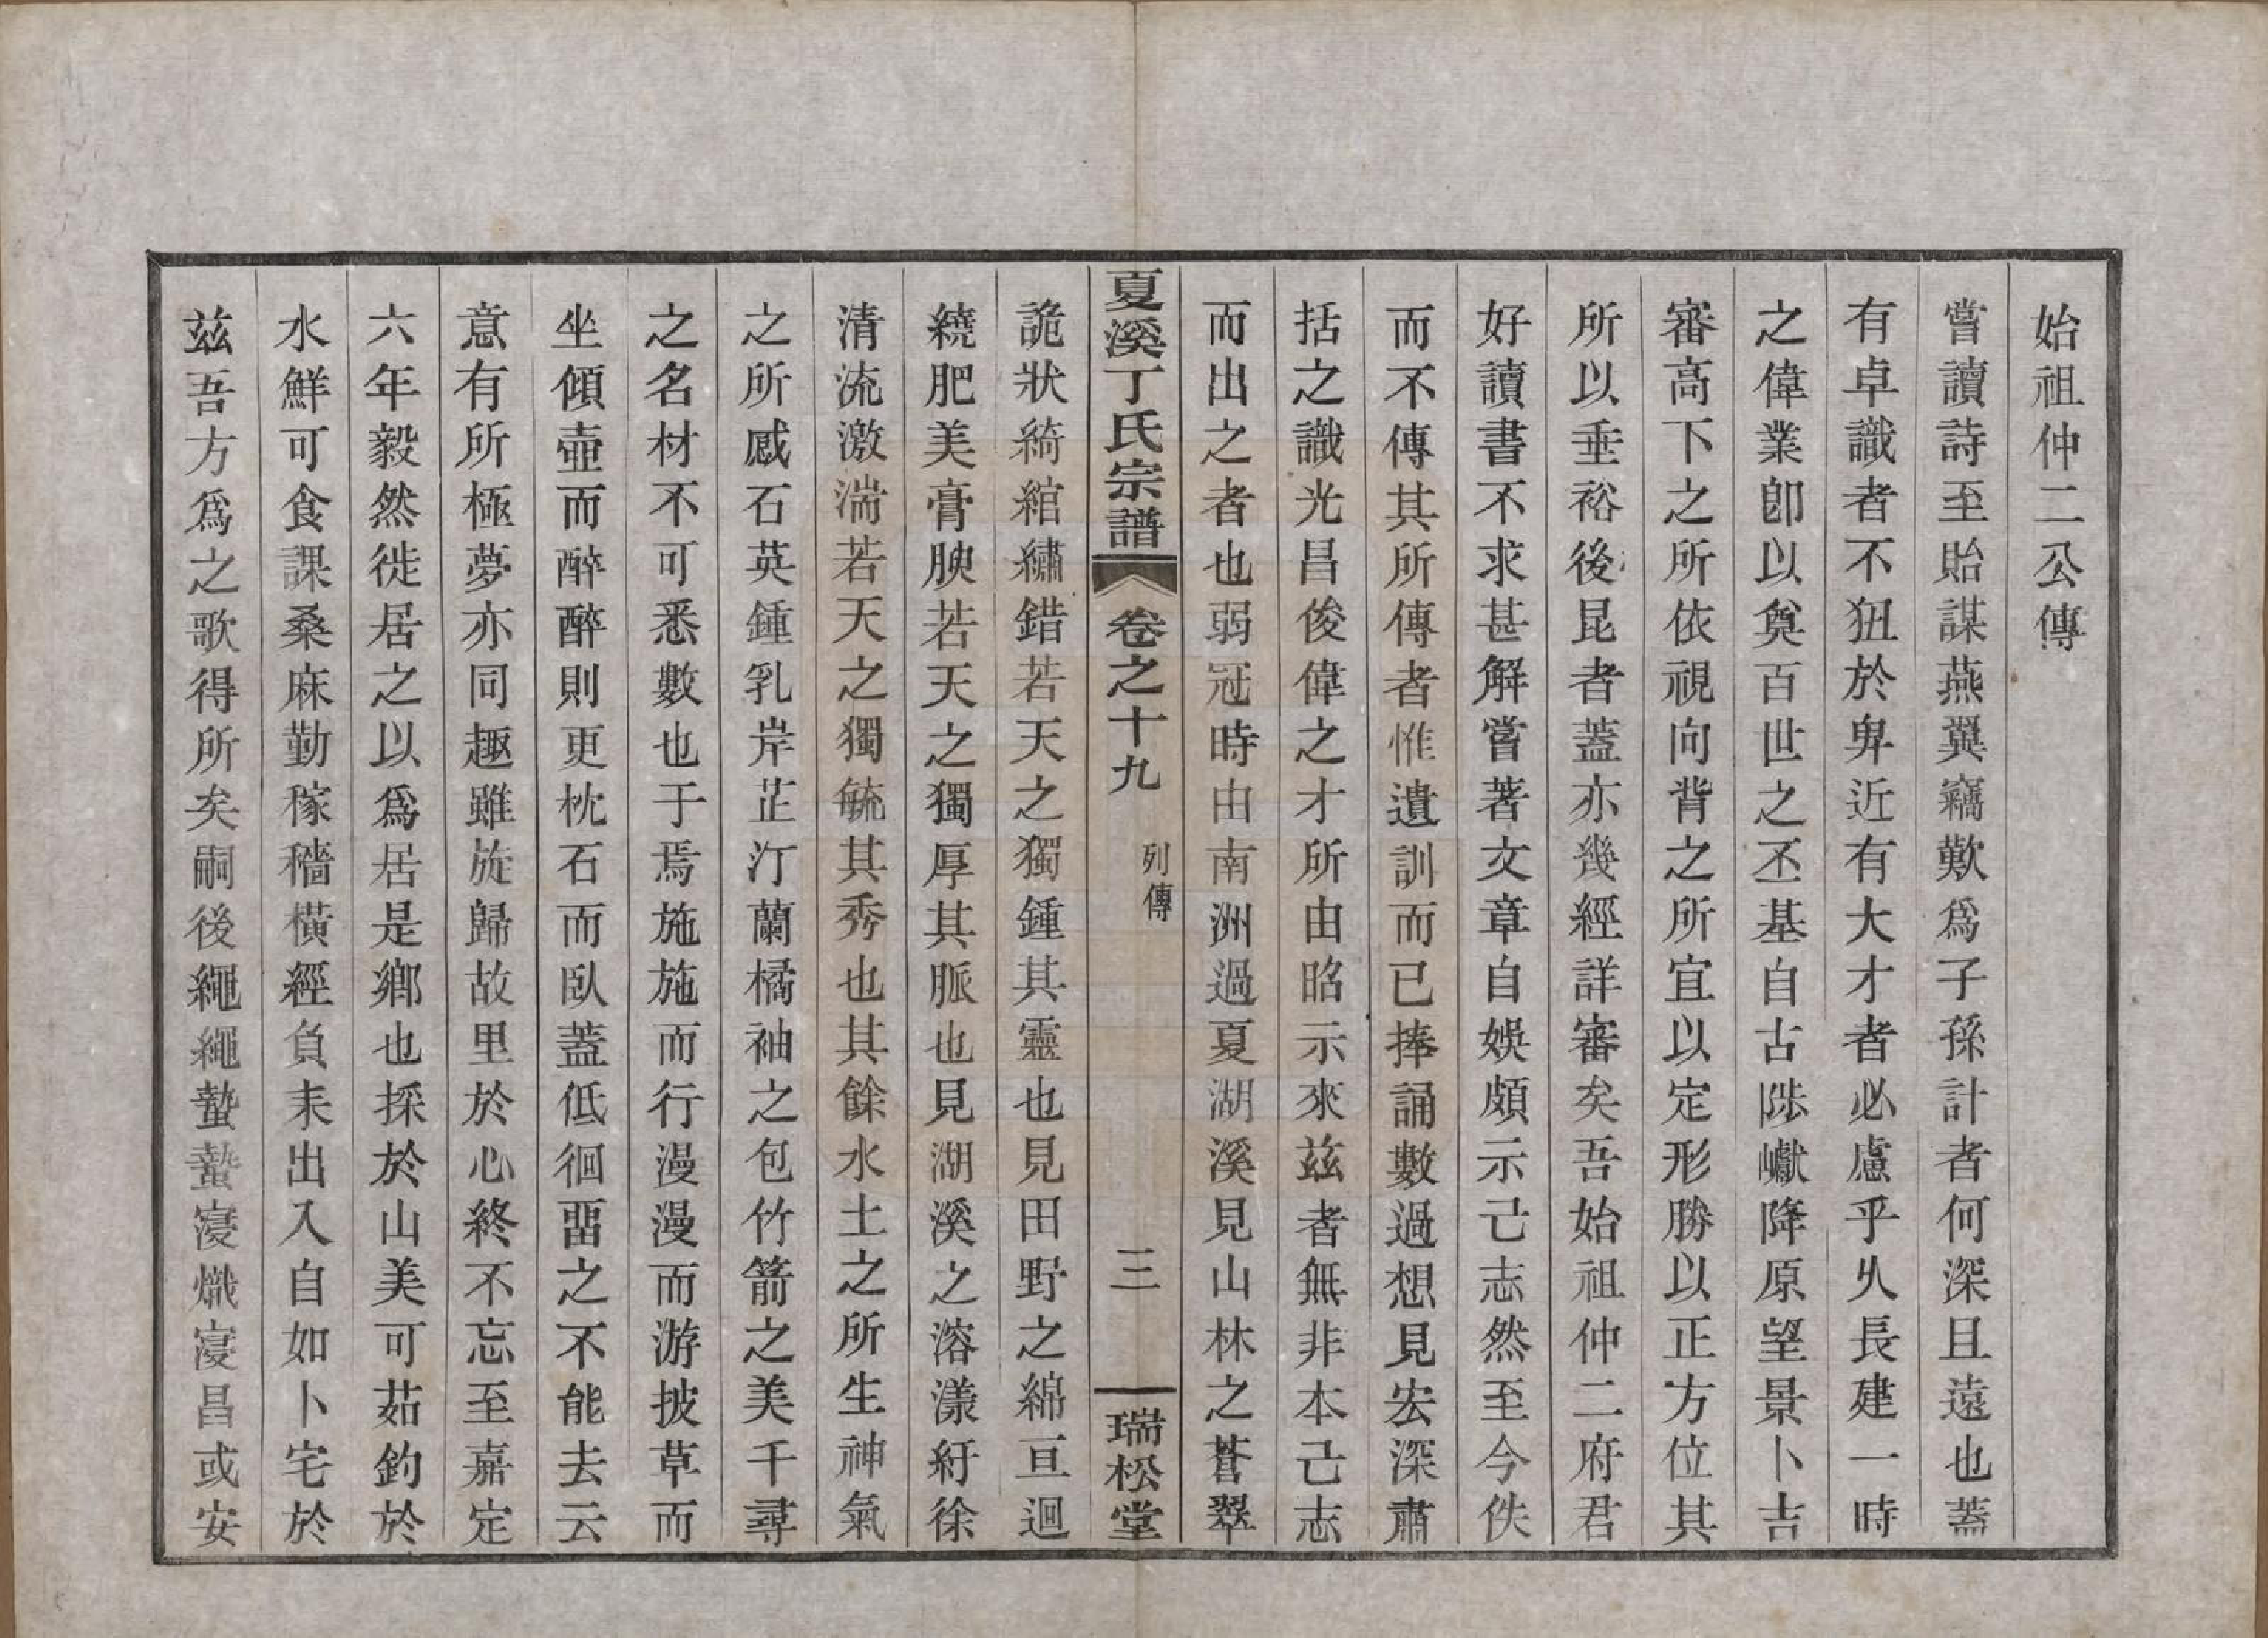 始祖仲二公傳
嘗讀詩至貽謀燕翼竊歎爲子孫計者何深且遠也蓋
有卓識者不狃於卑近有大才者必慮乎久長建一時
之偉業卽以奠百世之丕基自古陟巘降原望景卜吉
審高下之所依視向背之所宜以定形勝以正方位其
所以垂裕後昆者蓋亦幾經詳審矣吾始祖仲二府君
好讀書不求甚解嘗著文章自娛頗示己志然至今佚
而不傳其所傳者惟遺訓而已捧誦數過想見宏深肅
括之識光昌俊偉之才所由昭示來茲者無非本己志
而出之者也弱冠時由南洲過夏湖溪見山林之蒼翠
夏溪丁氏宗譜 卷之十九 列傳 三 瑞松堂
詭狀綺綰繡錯若天之獨鍾其靈也見田野之綿亘迴
繞肥美膏腴若天之獨厚其脈也見湖溪之溶漾紆徐
清流激湍若天之獨毓其秀也其餘水土之所生神氣
之所感石英鍾乳岸芷汀蘭橘柚之包竹箭之美千尋
之名材不可悉數也于焉施施而行漫漫而游披草而
坐傾壺而醉醉則更枕石而臥蓋低徊畱之不能去云
意有所極夢亦同趣雖旋歸故里於心終不忘至嘉定
六年毅然徙居之以爲居是鄉也採於山美可茹釣於
水鮮可食課桑麻勤稼穡橫經負耒出入自如卜宅於
茲吾方爲之歌得所矣嗣後繩繩蟄蟄寖熾寖昌或安